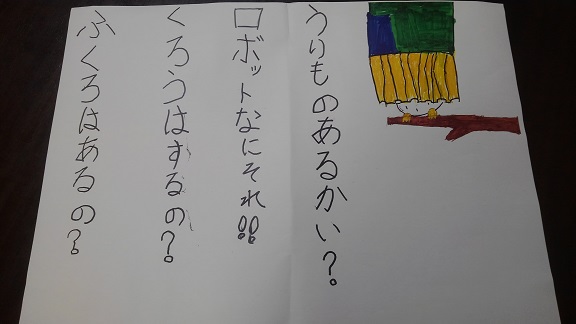 うりものあるかい?
ロボットなにそれ!!
くろうはするの?
ふくろはあるの?